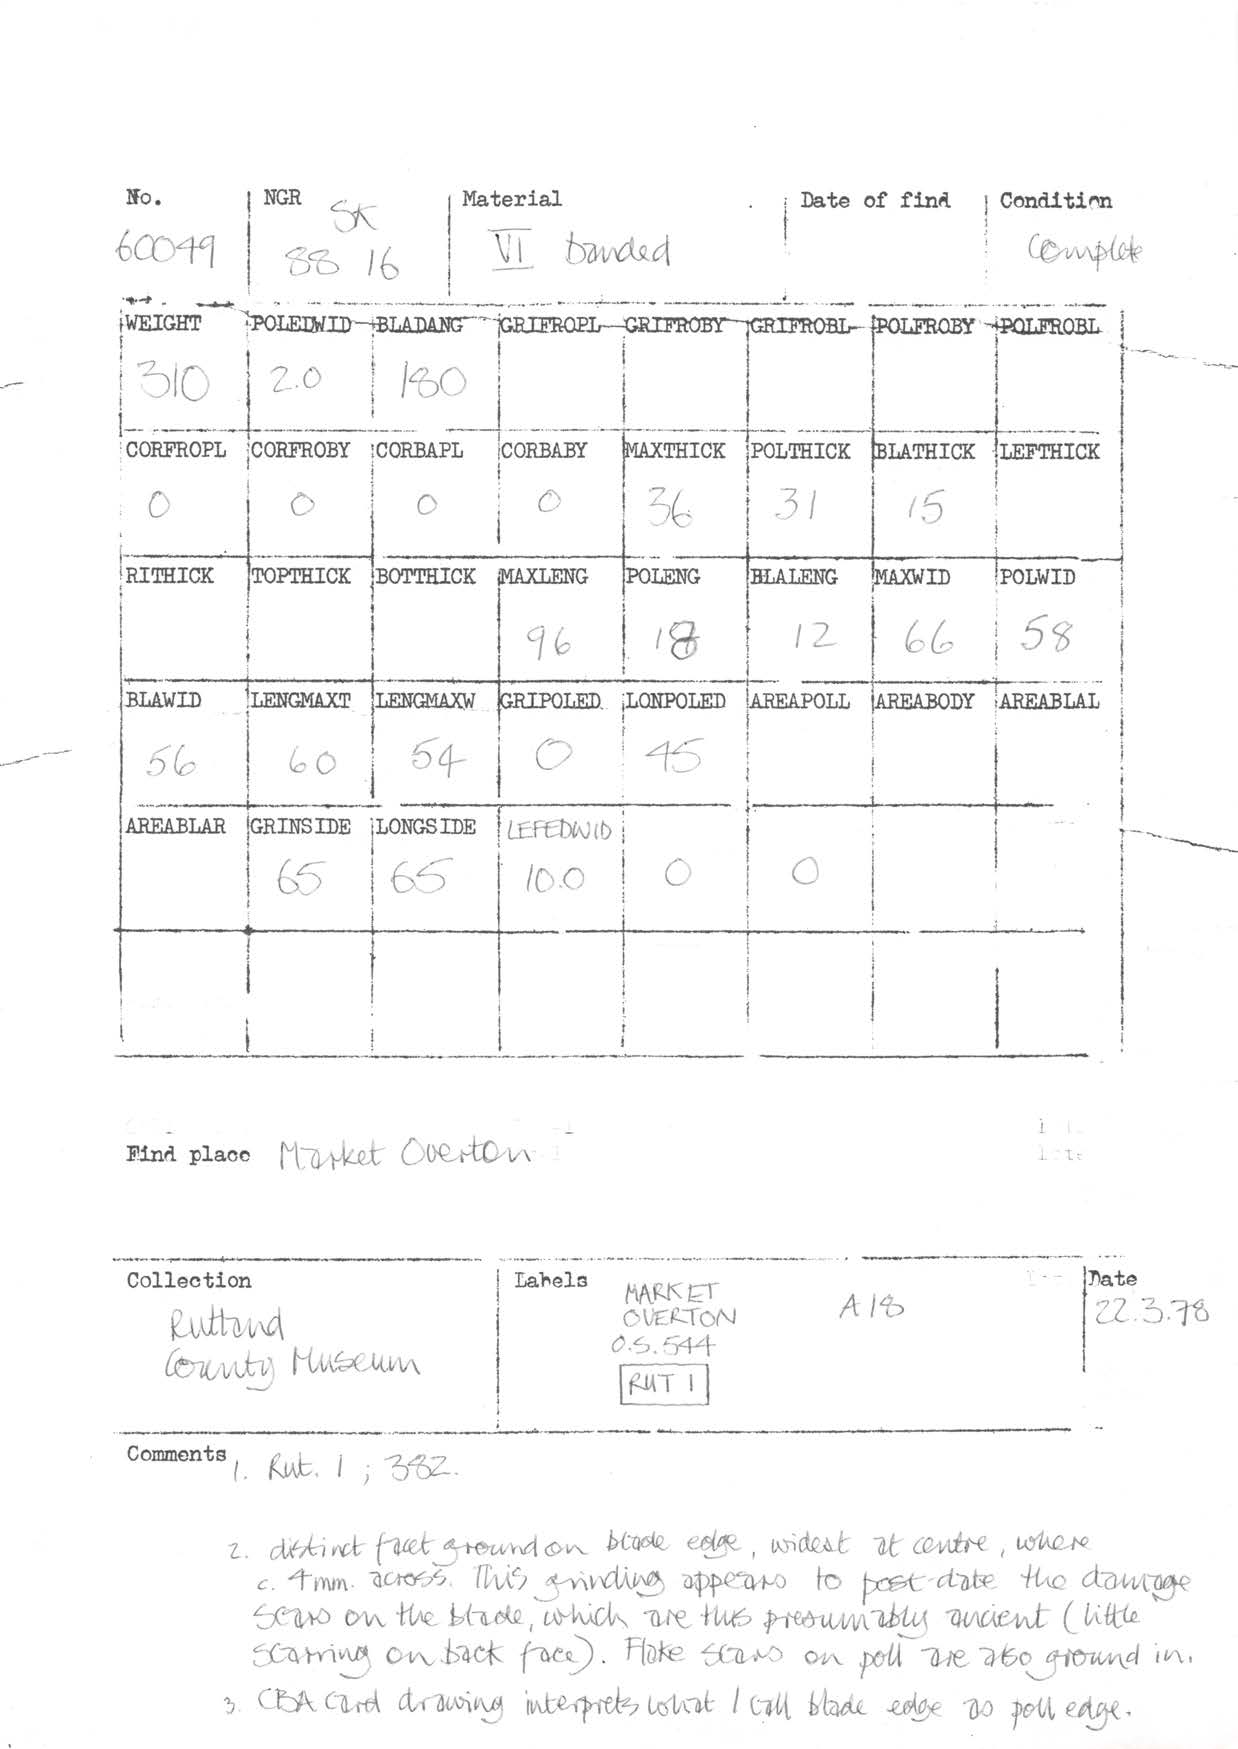 No. NGR Material Date of find Condition
SK
60049 88 16 VI banded Complete
WEIGHT POLEDWID BLADANG GRIFROPL GRIFROBY GRIFROBL POLFROBY POLFROBL
310 2.0 180
CORFROPL CORFROBY CORBAPL CORBABY MAXTHICK POLTHICK BLATHICK LEFTHICK
0 0 0 0 36 31 15
RITHICK TOPTHICK BOTTHICK MAXLENG POLENG BLALENG MAXWID POLWID
96 18 12 66 58
BLAWID LENGMAXT LENGMAXW GRIPOLED LONPOLED AREAPOLL AREABODY AREABLAL
56 60 54 0 45
AREABLAR GRINSIDE LONGSIDE LEFEDWID
65 65 10.0 0 0
Find place Market Overton
Collection Labels Date
MARKET A18 22.3.78
Rutland OVERTON
County Museum O.S.544
RUT 1
Comments 1. Rut. 1 ; 382.
2. distinct facet ground on blade edge, widest at centre, where
c. 4mm. across. This grinding appears to post-date the damage
scars on the blade, which are thus presumably ancient (little
scarring on back face). Flake scars on poll are also ground in.
3. CBA card drawing interprets what I call blade edge as poll edge.